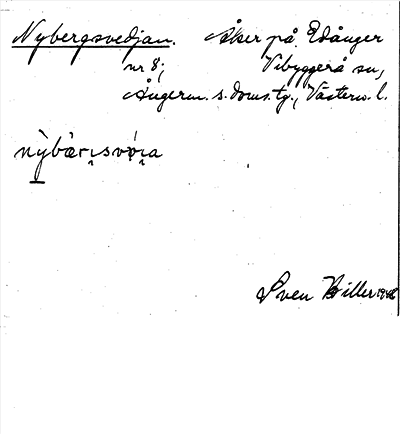 Nybergsvedjan. Åker på Edånger
nr 8; Vibyggerå sn,
Ångerm. s. doms. tg., Västern. l.
nỳbær̨ı̨svø̣ı̨a
Sven Biller 1948